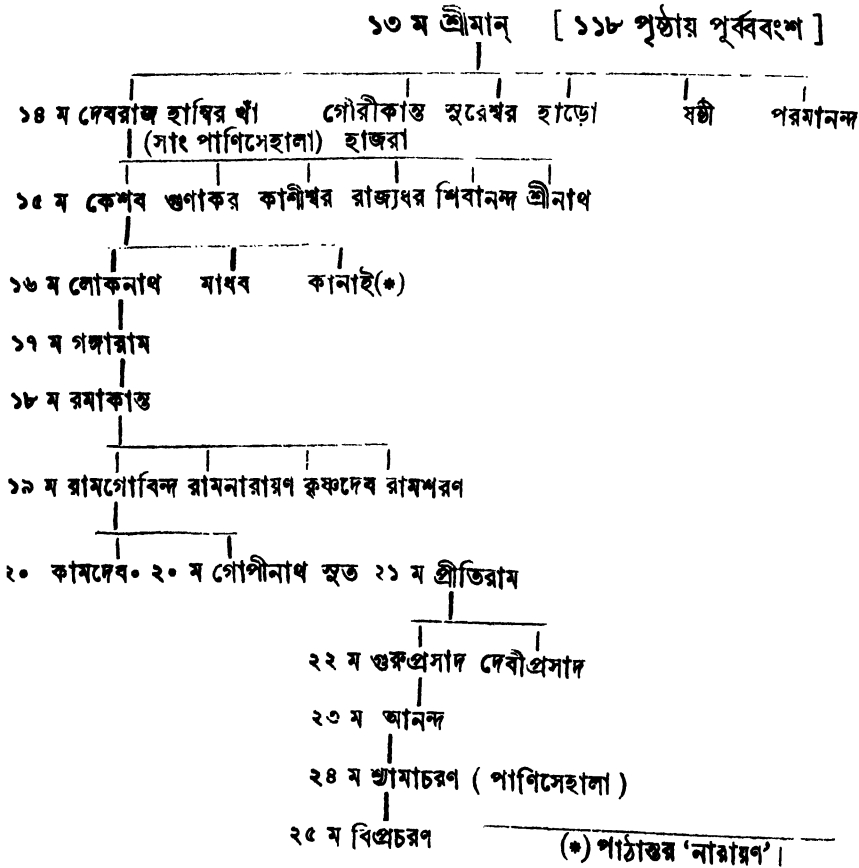 ১৩ ম শ্রীমান্ [ ১১৮ পৃষ্ঠায় পূর্ব্ববংশ ]
১৪ ম দেবরাজ হাম্বির খাঁ গৌরীকান্ত সুরেশ্বর হাড়ো ষষ্ঠী পরমানন্দ
(সাং পাণিসেহালা) হাজরা
১৫ ম কেশব গুণাকর কাশীশ্বর রাজ্যধর শিবানন্দ শ্রীনাথ
১৬ ম লোকনাথ মাধব কানাই(*)
১৭ ম গঙ্গারাম
১৮ ম রমাকান্ত
১৯ ম রামগোবিন্দ রামনারায়ণ কৃষ্ণদেব রামশরণ
২০ কামদেব। ২০ ম গোপীনাথ সুত ২১ ম প্রীতিরাম
২২ ম গুরুপ্রসাদ দেবীপ্রসাদ
২৩ ম আনন্দ
২৪ ম শ্যামাচরণ ( পাণিসেহালা )
২৫ ম বিপ্রচরণ
(*) পাঠান্তর ‘নারায়ণ’।